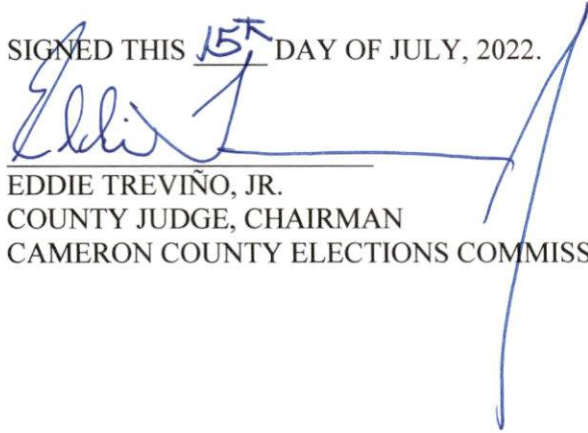 SIGNED THIS 15th DAY OF JULY, 2022.
Eddie T
EDDIE TREVIÑO, JR.
COUNTY JUDGE, CHAIRMAN
CAMERON COUNTY ELECTIONS COMMISS